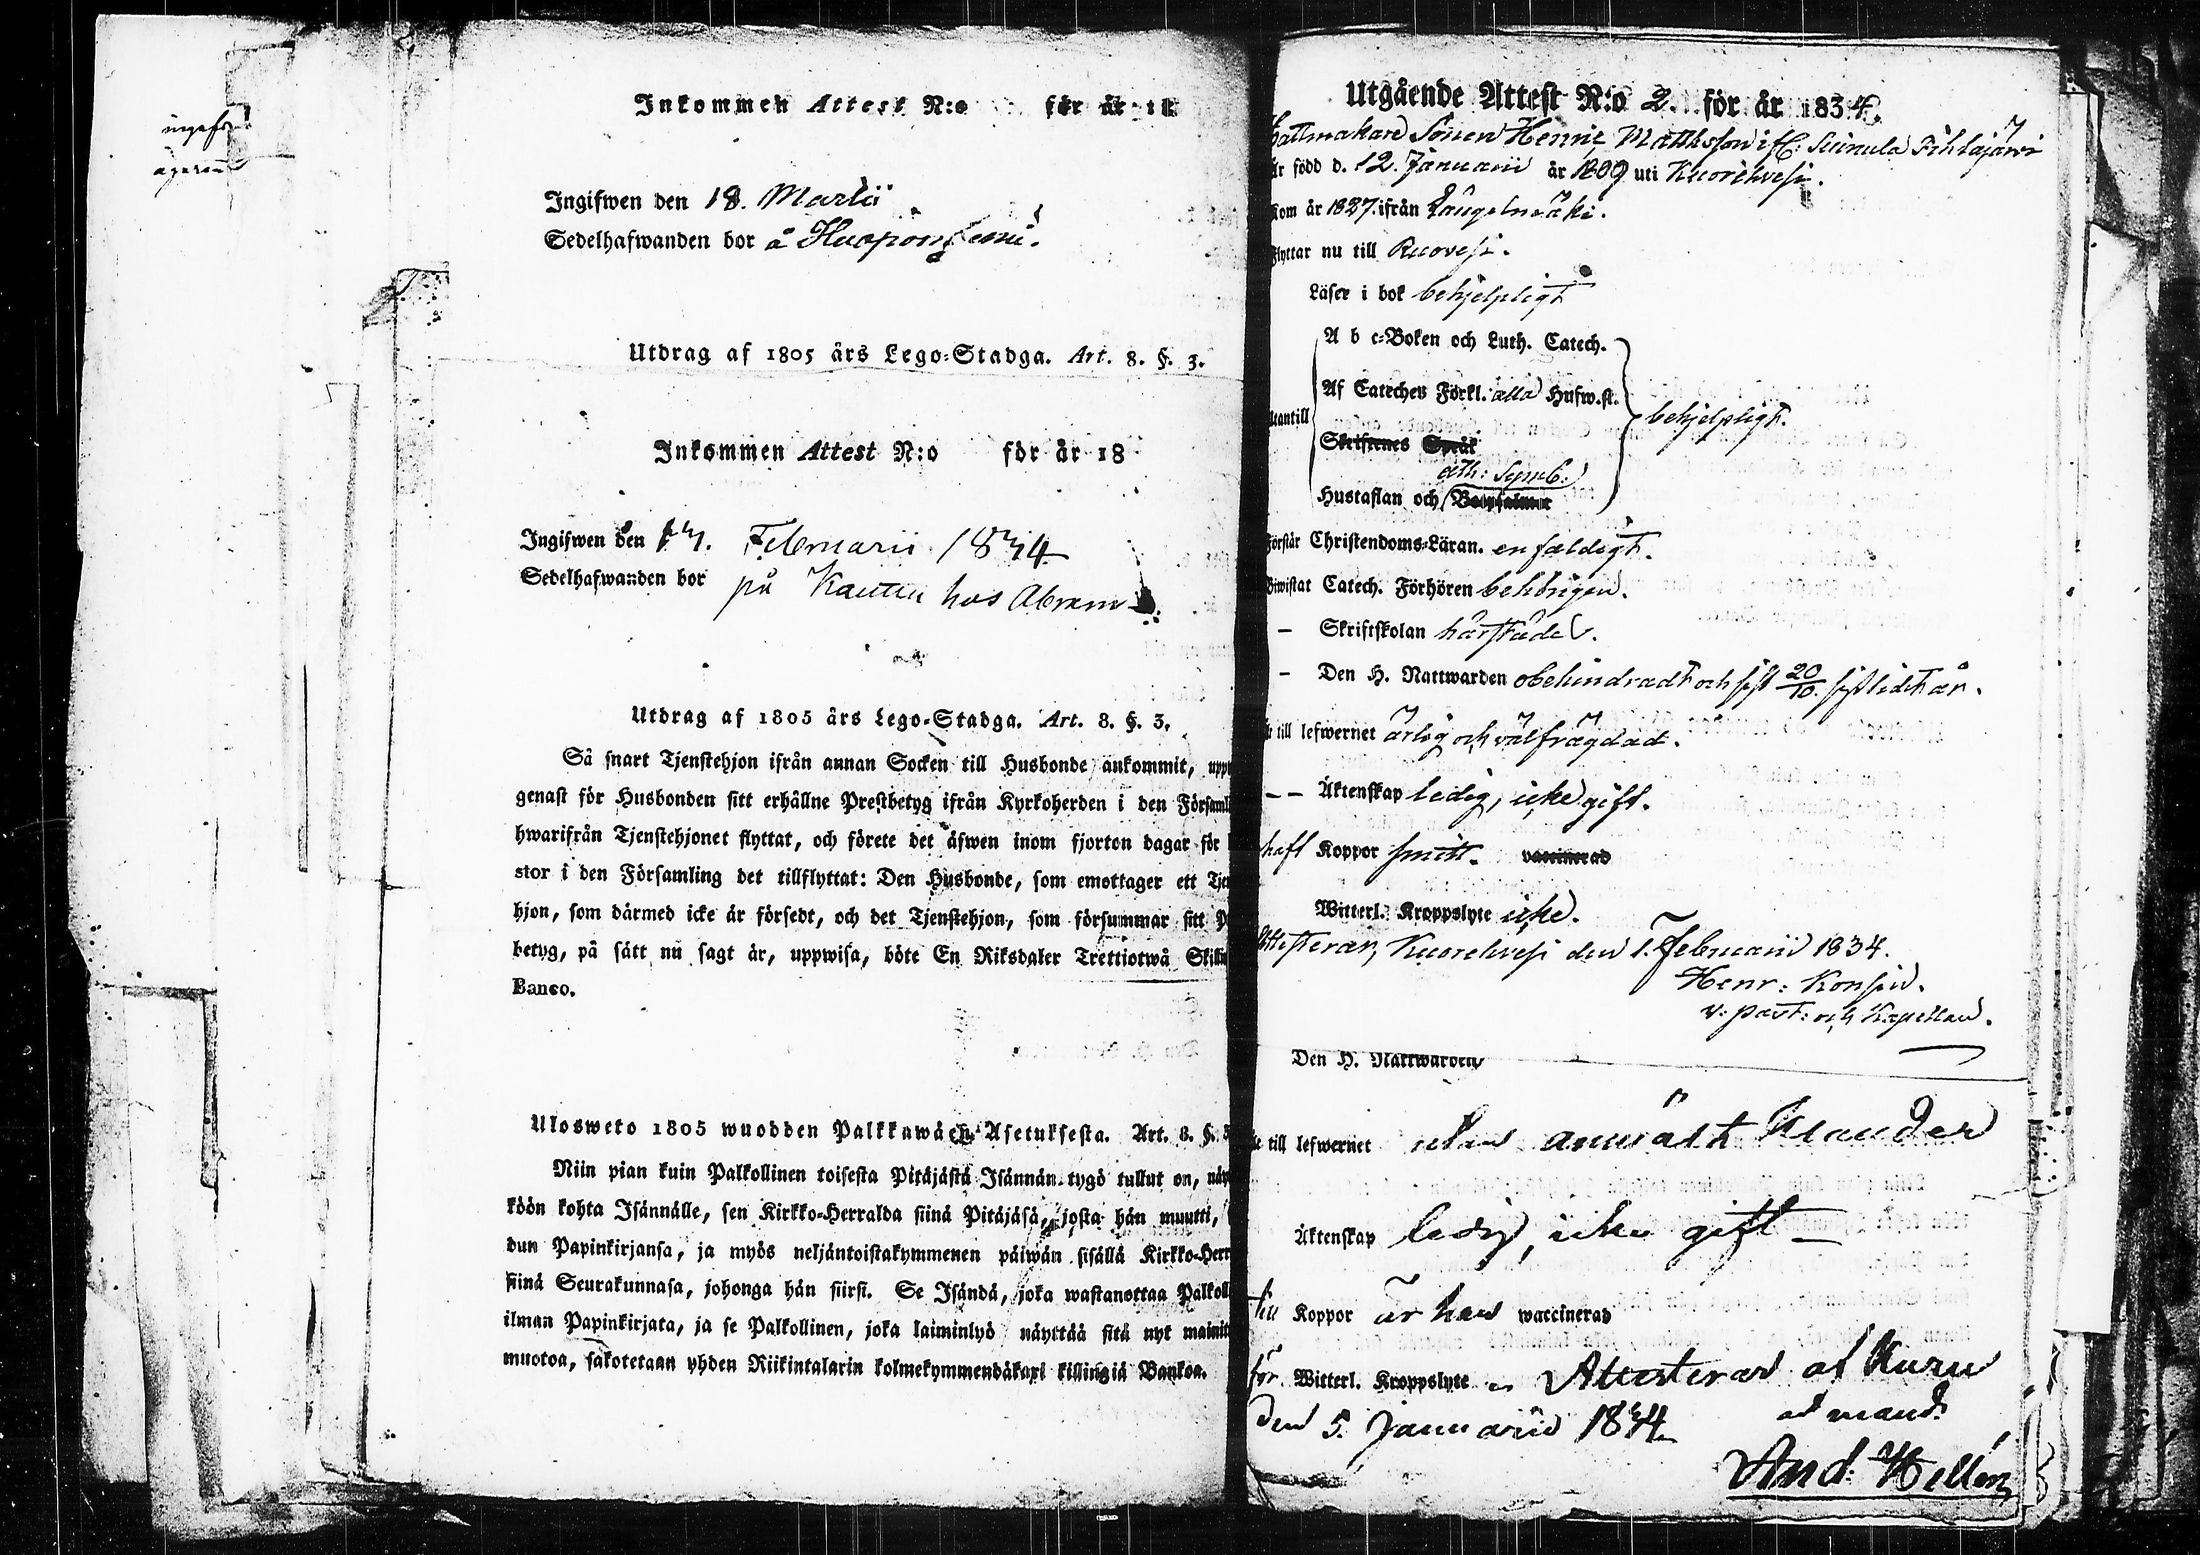 ingifv
ägaren
Inkommen Attest N:o för år 18
Ingifwen den 18. Martii
Sedelhafwanden bor å Haapaniemi.
Utdrag af 1805 års Lego-Stadga. Art. 8. §. 3.
Inkommen Attest N:o för år 18
Ingifwen den 17. Februarii 1834
Sedelhafwanden bor på Kauttu hos Abram
Utdrag af 1805 års Lego-Stadga. Art. 8. §. 3.
Så snart Tjenstehjon ifrån annan Socken till Husbonde ankommit, upp
genast för Husbonden sitt erhållne Prestbetyg ifrån Kyrkoherden i den Församl
hwarifrån Tjenstehjonet flyttat, och förete det äfwen inom fjorton dagar för
stor i den Församling det tillflyttat: Den Husbonde, som emottager ett Tjen
hjon, som därmed icke är försedt, och det Tjenstehjon, som försummar sitt P
betyg, på sätt nu sagt är, uppwisa, böte En Riksdaler Trettiotwå Skillin
Banco.
Ulosweto 1805 wuodden Palkkawäen Asetuksesta. Art. 8. §. 3
Niin pian kuin Palkollinen toisesta Pitäjästä Isännän tygö tullut on, näy
köön kohta Isännälle, sen Kirkko-Herralda siinä Pitäjäsä, josta hän muutti,
dun Papinkirjansa, ja myös neljäntoistakymmenen päiwän sisällä Kirkko-Herr
siinä Seurakunnasa, johonga hän siirsi. Se Isändä, joka wastanottaa Palkoll
ilman Papinkirjata, ja se Palkollinen, joka laiminlyö näyttää sitä nyt mainit
muotoa, sakotetaan yhden Riikintalarin kolmekymmendäkaxi killingiä Bankoa.
Utgående Attest N:o 2. för år 1834.
Hattmakare Sonen Henric Mattsson ifr: Suinula Pihlajärvi
är född d. 12. Januarii år 1809 uti Kuorehvesi.
Kom år 1827. ifrån Längelmäki.
Flyttar nu till Ruovesi.
Läser i bok behjelpligt
A b c-Boken och Luth. Catech.
Af Catechev Förkl. alla Hufw.st.
utantill behjelpligt.
Skriftenes Språk
Ath: Symb.
Hustaflan och Botpsalmer
Förstår Christendoms-Läran. enfaldigt.
Biwistat Catech. Förhören behörigen.
— Skriftskolan härstädes.
— Den H. Nattwarden obehindradt och sist 20/10. sistledit år.
till lefwernet ärlig och välfrägdad.
— — Äktenskap ledig, icke gift.
haft Koppor smitt. vaccinerad
Witterl. Kroppslyte icke.
Attesterar, Kuorehvesi den 1. Februarii 1834.
Henr: Konsin.
v. past: och Kapellan.
Den H. Nattwarden
till lefwernet utan anmält klander
Äktenskap ledig, icke gift —
till Koppor är han waccinerad
för Witterl. Kroppslyte Attesterar af Kuru
den 5. Januarii 1834 ad mand:
And: Hellén